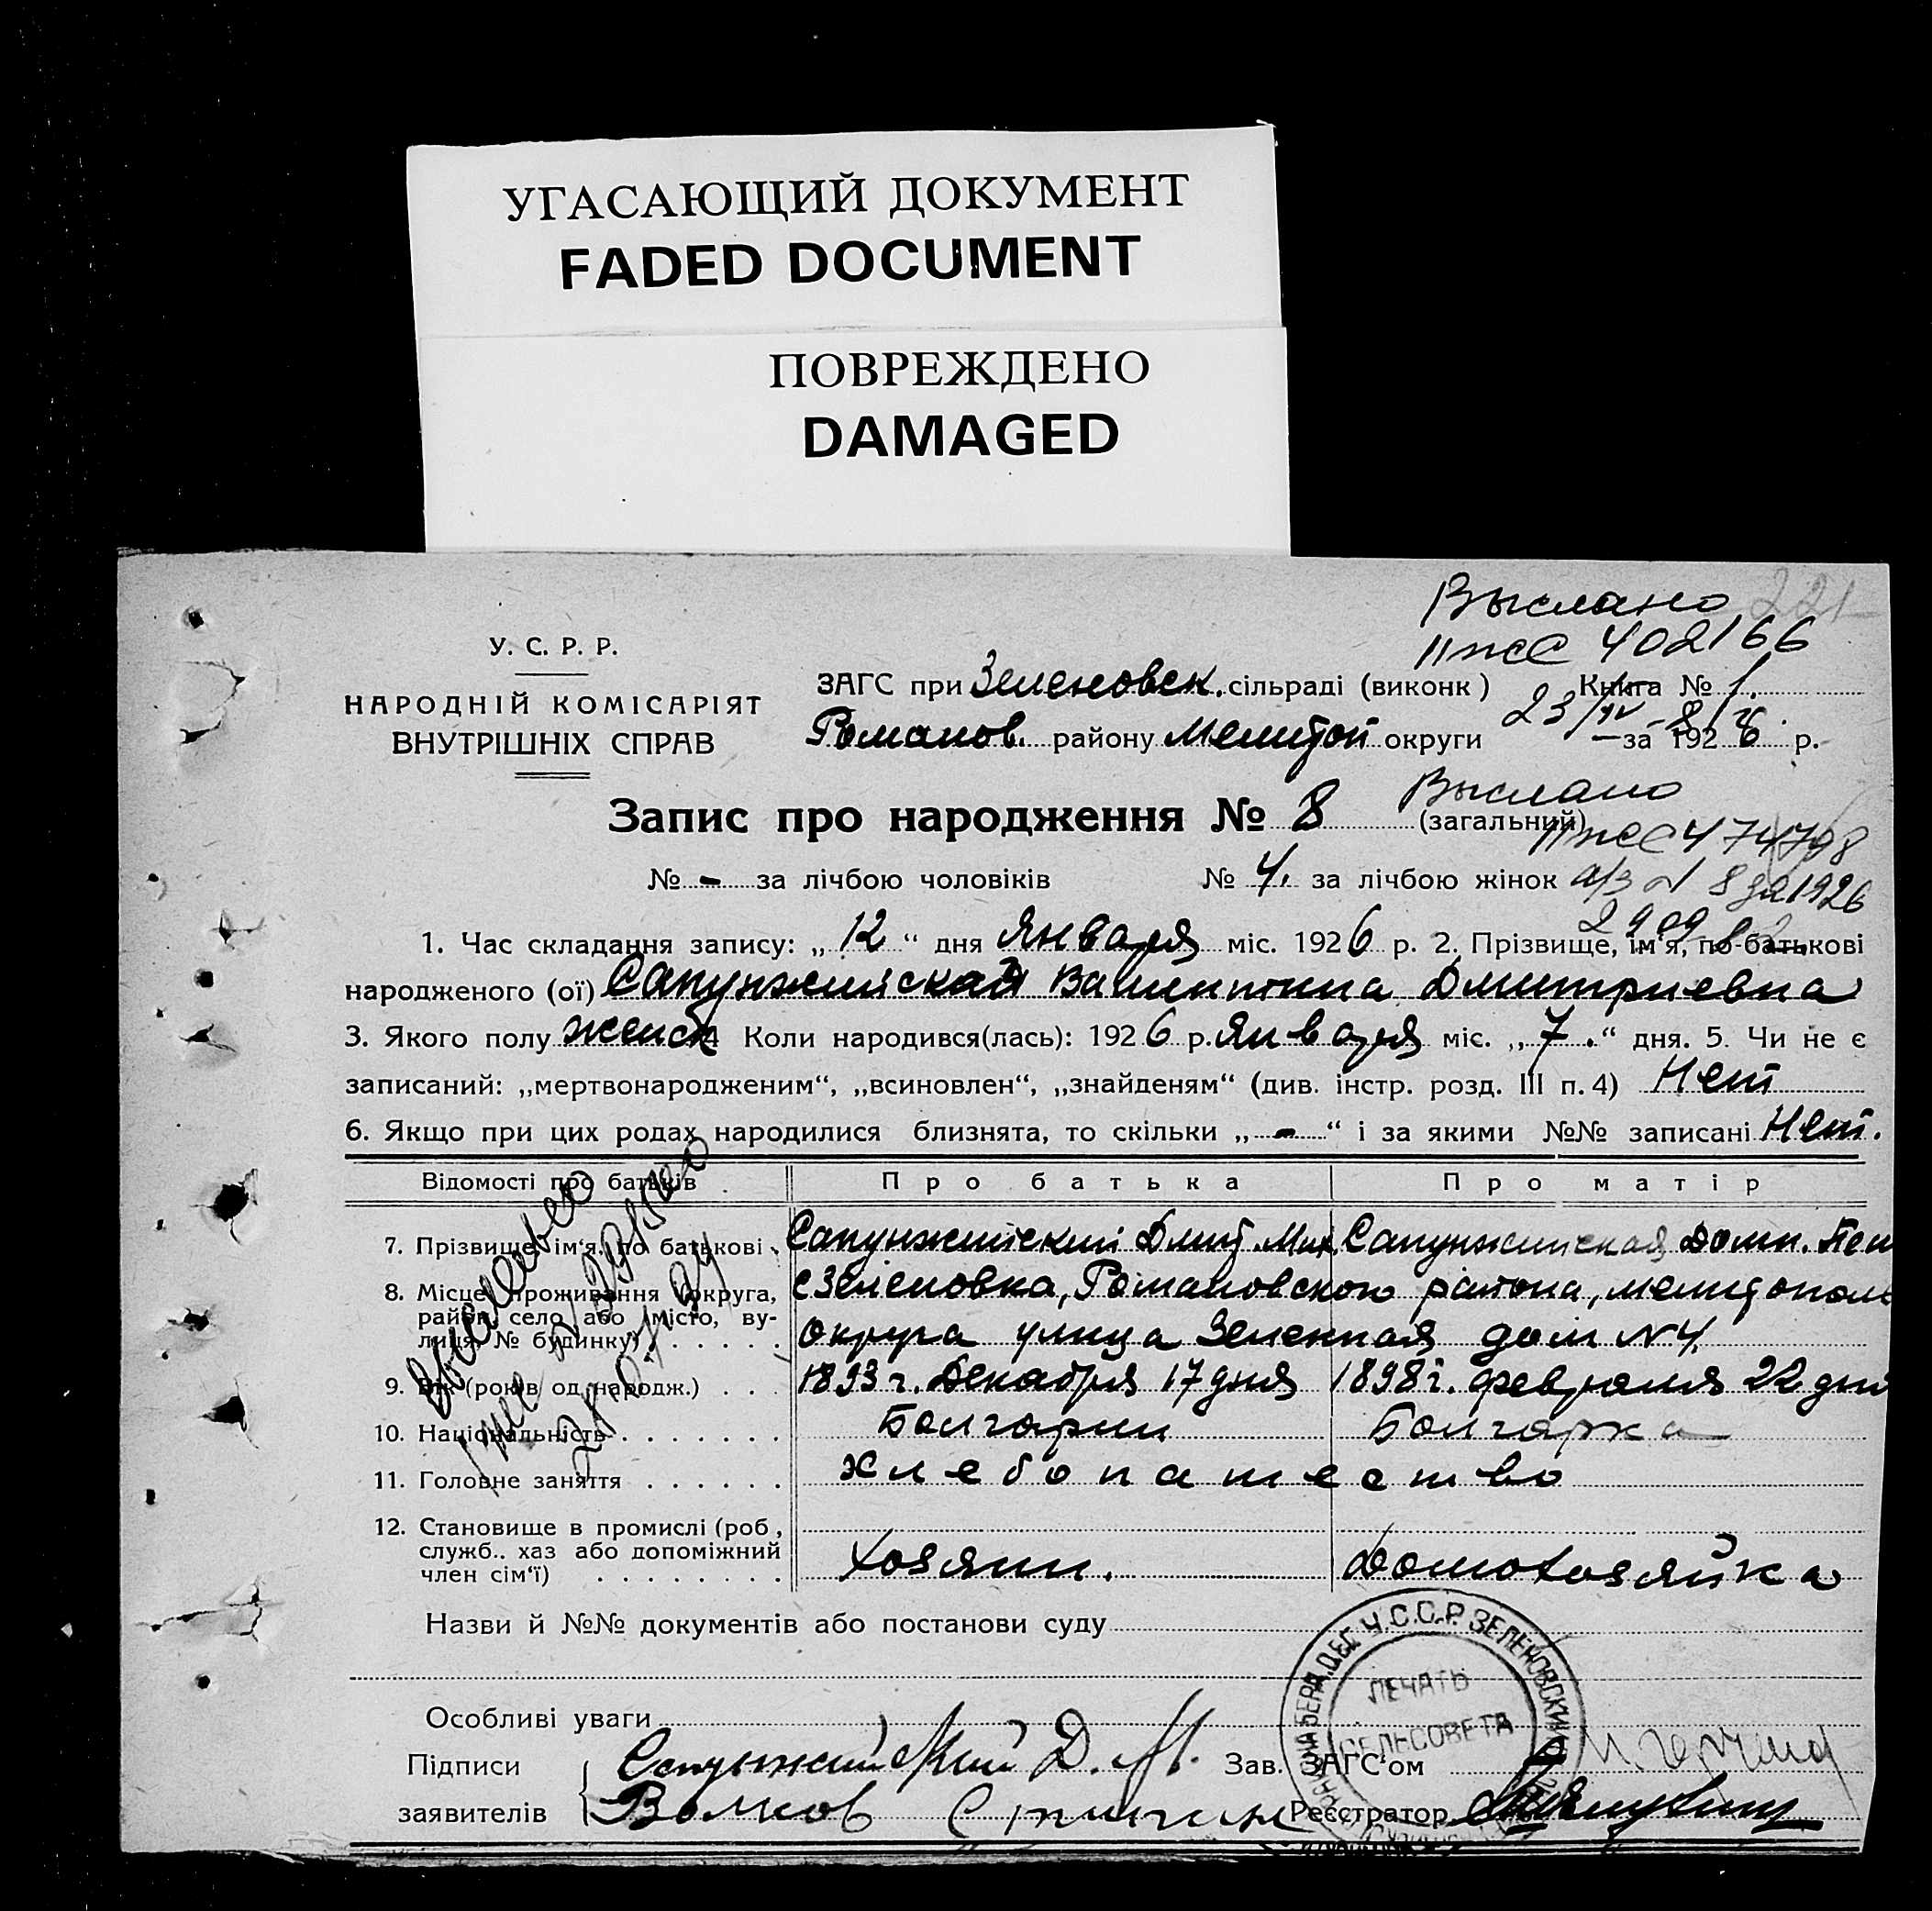 УГАСАЮЩИЙ ДОКУМЕНТ
FADED DOCUMENT
ПОВРЕЖДЕНО
DAMAGED
Выслано 221
ПЖС 402166
У. С. Р. Р.
НАРОДНІЙ КОМІСАРІЯТ
ВНУТРІШНІХ СПРАВ
ЗАГС при Зеленовск. сільраді (виконк) Книга № 1.
Романов. району Мелитоп округи за 1926 р.
Запис про народження № 8 (загальний)
Выслано
ПЖС 474798
№ - за лічбою чоловіків № 4. за лічбою жінок
а/з N 8 за 1926
1. Час складання запису: „12“ дня Января міс. 1926 р. 2. Прізвище, ім'я, по-батькові
народженого (ої) Сапунжийская Валентина Дмитриевна
3. Якого полу женск 4 Коли народився(лась): 1926 р. Января міс. „7.“ дня. 5. Чи не є
записаний: „мертвонародженим“, „всиновлен“, „знайденям“ (див. інстр. розд. III п. 4) Нет
6. Якщо при цих родах народилися близнята, то скільки „-“ і за якими №№ записані Нет.
Відомості про батьків Про батька Про матір
7. Прізвище, ім'я, по батькові. Сапунжийский Дмит. Мих. Сапунжийская Домн. Пет
8. Місце проживання (округа, с Зеленовка, Романовского района, мелитополь
район, село або місто, ву-
лиця, № будинку) . . . . . округа улица Зеленная дом N 4.
9. Вік (років од народж.) . . . 1893 г. Декабря 17 дня 1898 г. февраля 22 дня
10. Національність . . . . . . . Болгарин Болгарка
11. Головне заняття . . . . . . Хлебопашество
12. Становище в промислі (роб.,
служб.. хаз або допоміжний
член сім'ї) . . . . . . . . Хозяин. Домохозяйка
Назви й №№ документів або постанови суду
Особливі уваги
Підписи Сапунжийский Д. М. Зав. ЗАГС'ом
заявителів Волков Реєстратор
У.С.С.Р. ЗЕЛЕНОВСКИЙ
ПЕЧАТЬ
СЕЛЬСОВЕТА